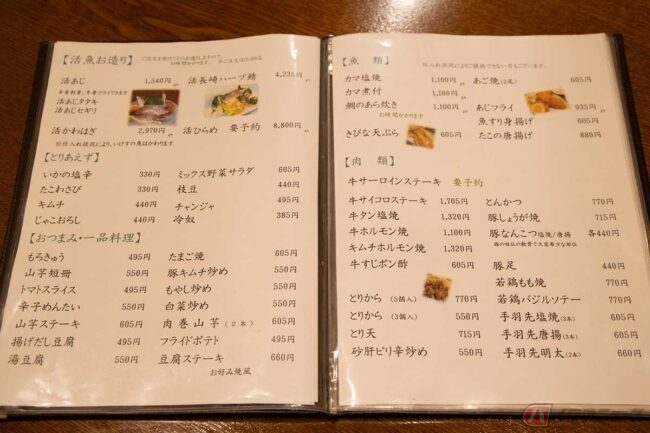 【活魚お造り】
活あじ 1,540円
活あじタタキ
活あじセギリ
活長崎ハーブ鯖 4,235円
活かわはぎ 2,970円
活ひらめ 要予約 8,800円
【とりあえず】
いかの塩辛 330円
たこわさび 330円
キムチ 440円
じゃこおろし 440円
ミックス野菜サラダ 605円
枝豆 440円
チャンジャ 495円
冷奴 385円
【おつまみ・一品料理】
もろきゅう 495円
山芋短冊 550円
トマトスライス 495円
辛子めんたい 550円
山芋ステーキ 605円
揚げだし豆腐 495円
湯豆腐 550円
たまご焼 605円
豚キムチ炒め 550円
もやし炒め 550円
白菜炒め 550円
肉巻山芋(2本) 605円
フライドポテト 495円
豆腐ステーキ 660円
お好み焼風
【魚 類】
カマ塩焼 1,100円
カマ煮付 1,100円
鯛のあら炊き 1,100円
お時間かかります
きびな天ぷら 605円
あご焼(2尾) 605円
あじフライ 935円
魚すり身揚げ 605円
たこの唐揚げ 880円
【肉 類】
牛サーロインステーキ 要予約
牛サイコロステーキ 1,705円
牛タン塩焼 1,320円
牛ホルモン焼 1,100円
キムチホルモン焼 1,320円
牛すじポン酢 605円
とりから(5個入) 770円
とりから(3個入) 550円
とり天 715円
砂肝ピリ辛炒め 550円
とんかつ 770円
豚しょうが焼 715円
豚なんこつ塩焼/唐揚 各440円
豚足 440円
若鶏もも焼 770円
若鶏バジルソテー 770円
手羽先塩焼(3本) 605円
手羽先唐揚(3本) 605円
手羽先明太(2本) 660円